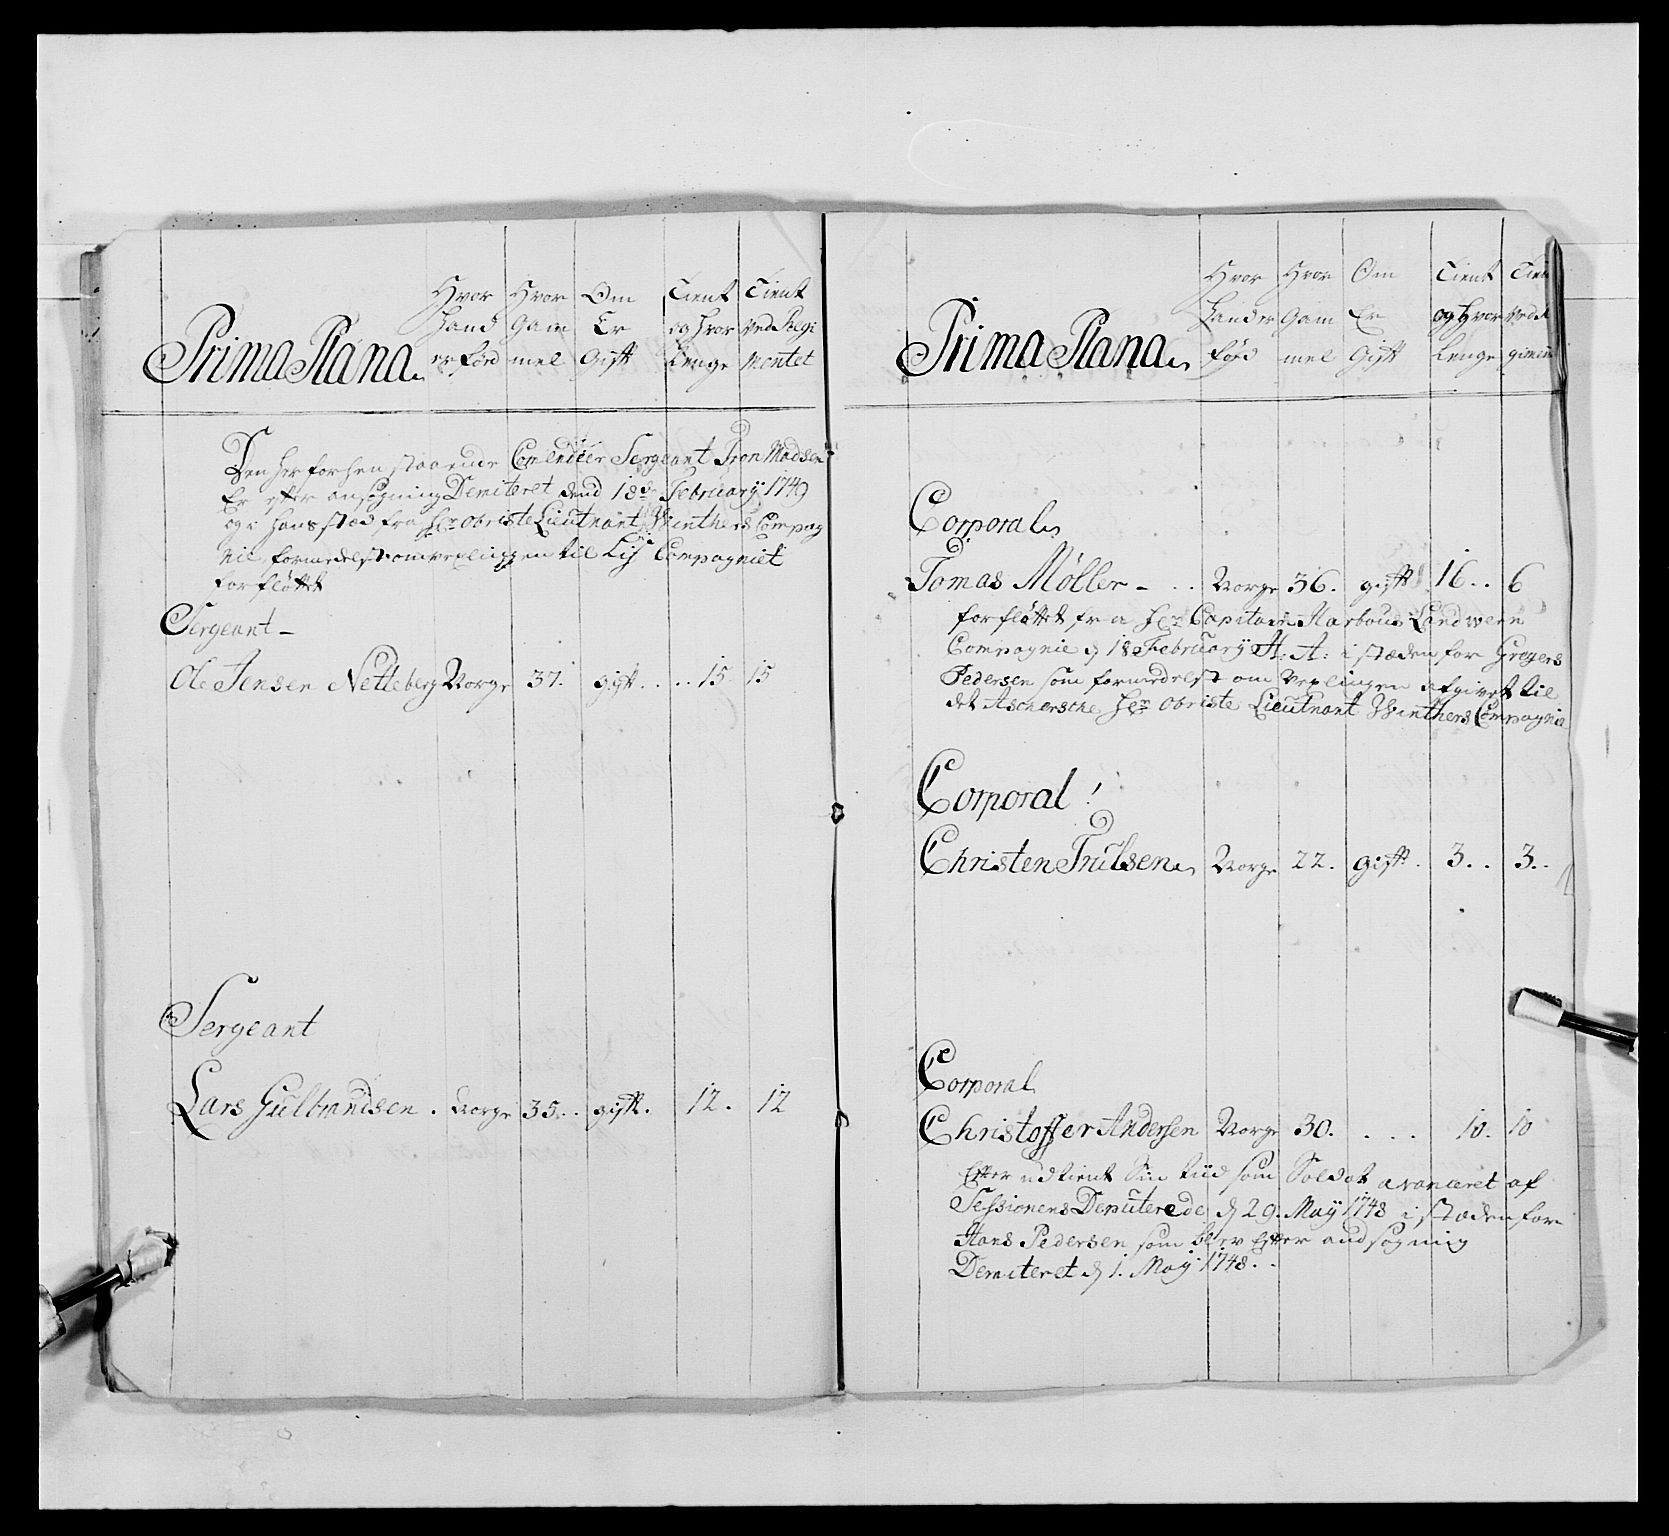 Prima Plana
Hvor Hvor Om Tient Tient
Hand Gam Er og hvor ved Regi
er Fød mel Gift Lenge mentet
Den her forhen staaende Comendeer Sergeant Tron Madsen
Er efter ansøgning Demiteret dend 18de February 1749
og i hans stæd fra Hr Obriste Lieutnant Winthers Compag
nie formedelst omvexlingen til Lif Compagniet
forfløttet
Sergeant
Ole Jensen Netteberg Norge 37. gift .. 15 15
Sergeant
Lars Gulbrandsen . Norge 35. . gift. 12. 12
Prima Plana
Hvor Hvor Om Tient Tien
Hand er Gam Er og Hvor ved R
Fød mel Gift Lenge gimen
Corporal
Tomas Møller - . . Norge 36. gift 16. . 6
forfløttet fra Hr Capitain Harbous Landwern
Compagnie d 18 February A: A: i stæden for Gregers
Pedersen som formedelst omvexlingen afgivet til
det Aschersche Hr Obriste Lieutnant Winthers Compagnie
Corporal !
Christen Trulsen Norge 22. gift. 3. . 3. .
Corporal
Christoffer Andersen Norge 30. . . . 10. 10
Efter udtient Sin tiid som Soldat avanceret af
Sessionens Deputerede d 29. May 1748 i stæden for
Hans Pedersen som blev Efter andsøgning
Demiteret d 1. May 1748. .